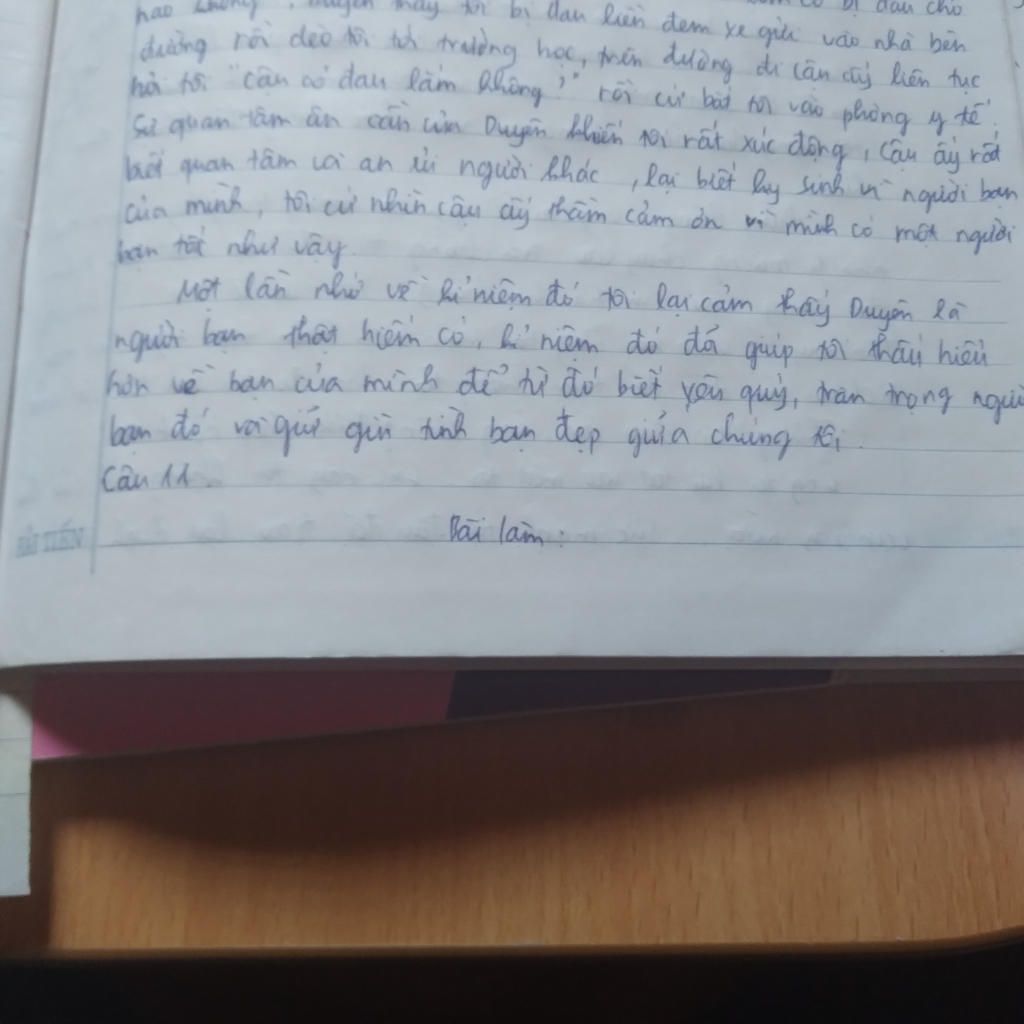 bị đau cho
hao không, Duyên thấy tôi bị đau liền đem xe gửi vào nhà bên
đường rồi đèo tôi tới trường học, trên đường đi cậu ấy liên tục
hỏi tôi "cậu có đau lắm không?" rồi cứ bắt tôi vào phòng y tế.
Sự quan tâm ân cần của Duyên khiến tôi rất xúc động, cậu ấy rất
biết quan tâm và an ủi người khác, lại biết hy sinh vì người bạn
của mình, tôi cứ nhìn cậu ấy thầm cảm ơn vì mình có một người
bạn tốt như vậy.
Một lần nhớ về kỉ niệm đó tôi lại cảm thấy Duyên là
người bạn thật hiếm có, kỉ niệm đó đã giúp tôi thấu hiểu
hơn về bạn của mình để từ đó biết yêu quý, trân trọng người
bạn đó và giữ gìn tình bạn đẹp giữa chúng tôi.
Câu 11.
Bài làm:
HẢI TIẾN